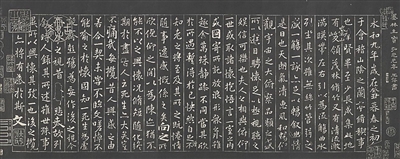 永和九年歲在癸丑暮春之初會
于會稽山陰之蘭亭脩稧事
也群賢畢至少長咸集此地
有崇山峻領茂林脩竹又有清流激
湍暎帶左右引以為流觴曲水
列坐其次雖無絲竹管弦之
盛一觴一詠亦足以暢敘幽情
是日也天朗氣清惠風和暢仰
觀宇宙之大俯察品類之盛
所以遊目騁懷足以極視聽之
娛信可樂也夫人之相與俯仰
一世或取諸懷抱悟言一室之內
或因寄所託放浪形骸之外雖
趣舍萬殊靜躁不同當其欣
於所遇暫得於己快然自足不
知老之將至及其所之既惓情
隨事遷感慨係之矣向之所
欣俛仰之間以為陳迹猶不
能不以之興懷況脩短隨化終
期於盡古人云死生亦大矣豈
不痛哉每攬昔人興感之由
若合一契未嘗不臨文嗟悼不
能喻之於懷固知一死生為虛
誕齊彭殤為妄作後之視今
亦由今之視昔悲夫故列
敘時人錄其所述雖世殊事
異所以興懷其致一也後之攬
者亦將有感於斯文